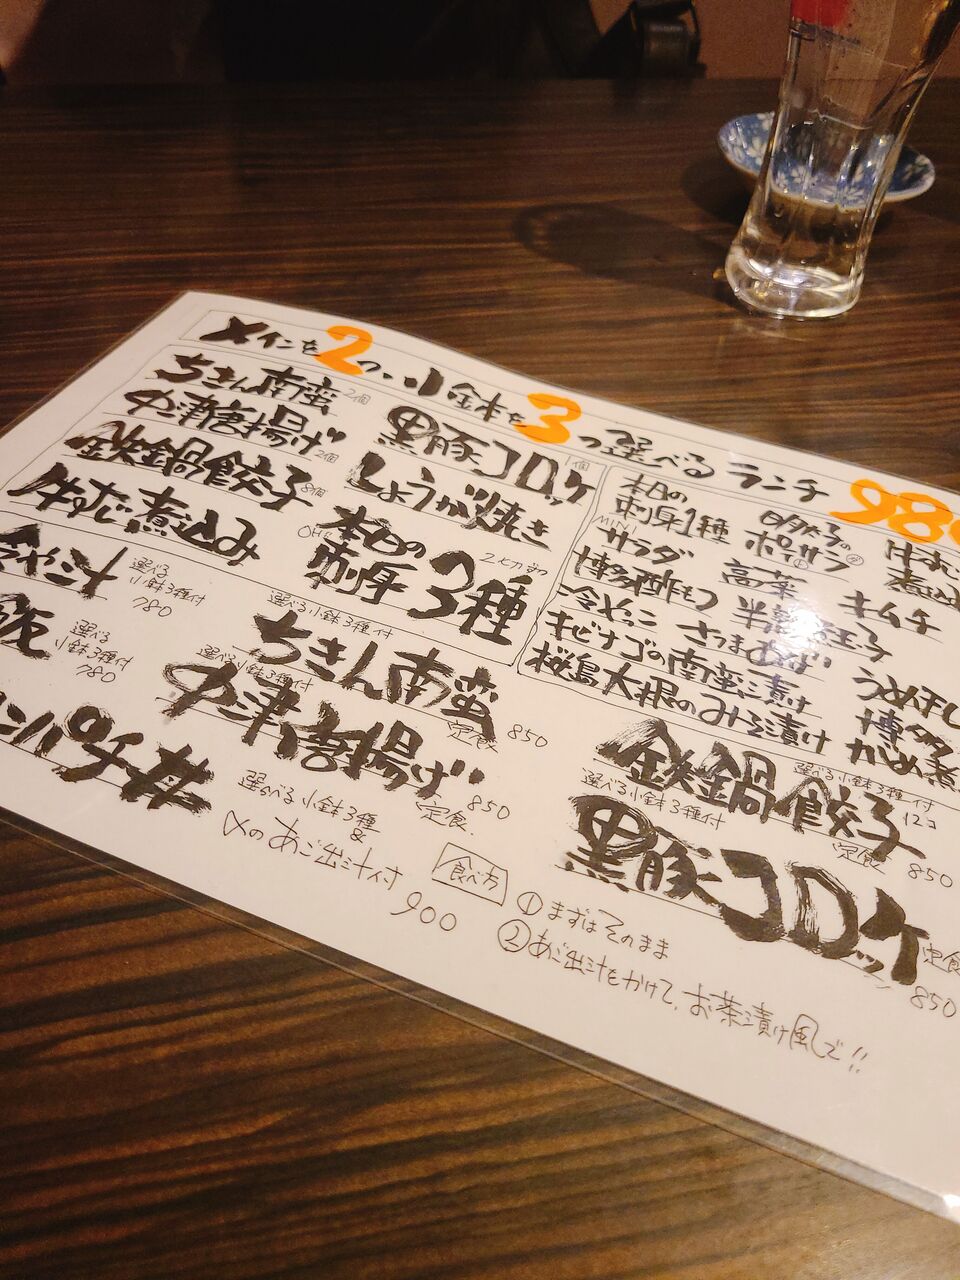 メインを2つ、小鉢を3つ選べるランチ 980
ちきん南蛮 2個
中津唐揚げ 2個
鉄鍋餃子 8個
牛すじ煮込み
黒豚コロッケ 1個
しょうが焼き
本日の刺身3種 2切れずつ
本日の刺身1種
MINI サラダ
博多酢もつ
冷やっこ
キビナゴの南蛮漬け
桜島大根のみそ漬け
明太子のポテサラ
高菜
半熟玉子
さつまあげ
牛すじ煮込み
キムチ
うめ干し
博多がめ煮
冷や汁
選べる小鉢3種付
780
飯
選べる小鉢3種付
780
選べる小鉢3種付
ちきん南蛮 定食 850
選べる小鉢3種付
中津唐揚げ 定食 850
選べる小鉢3種付
鉄鍋餃子 12コ 定食 850
選べる小鉢3種付
黒豚コロッケ 定食 850
パチ丼
選べる小鉢3種 &
〆のあご出汁付
900
食べ方 ①まずはそのまま
②あご出汁をかけて、お茶漬け風で!!